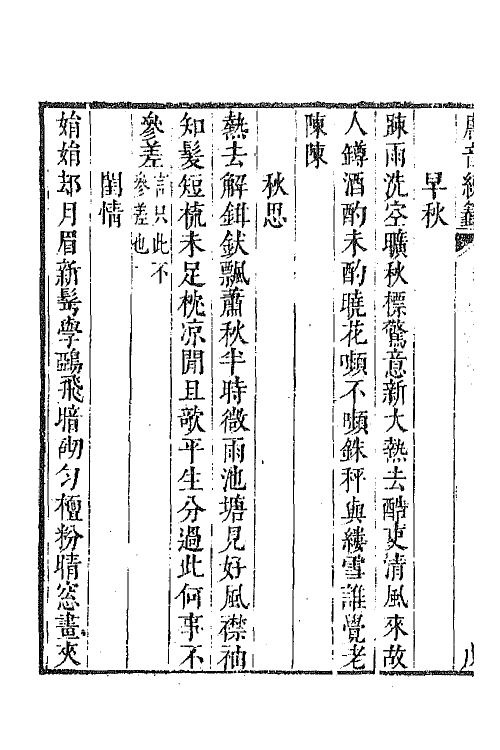 早秋
疎雨洗空曠秋標驚意新大熱去酷吏清風來故
人罇酒酌未酌曉花嚬不嚬銖秤與縷雪誰覺老
陳陳
秋思
熱去解鉗釱飄蕭秋半時微雨池塘見好風襟袖
知髮短梳未足枕凉閒且欹平生分過此何事不
參差言只此不
參差也
閨情
娟娟却月眉新鬂學鵶飛暗砌匀檀粉晴窓畫夾